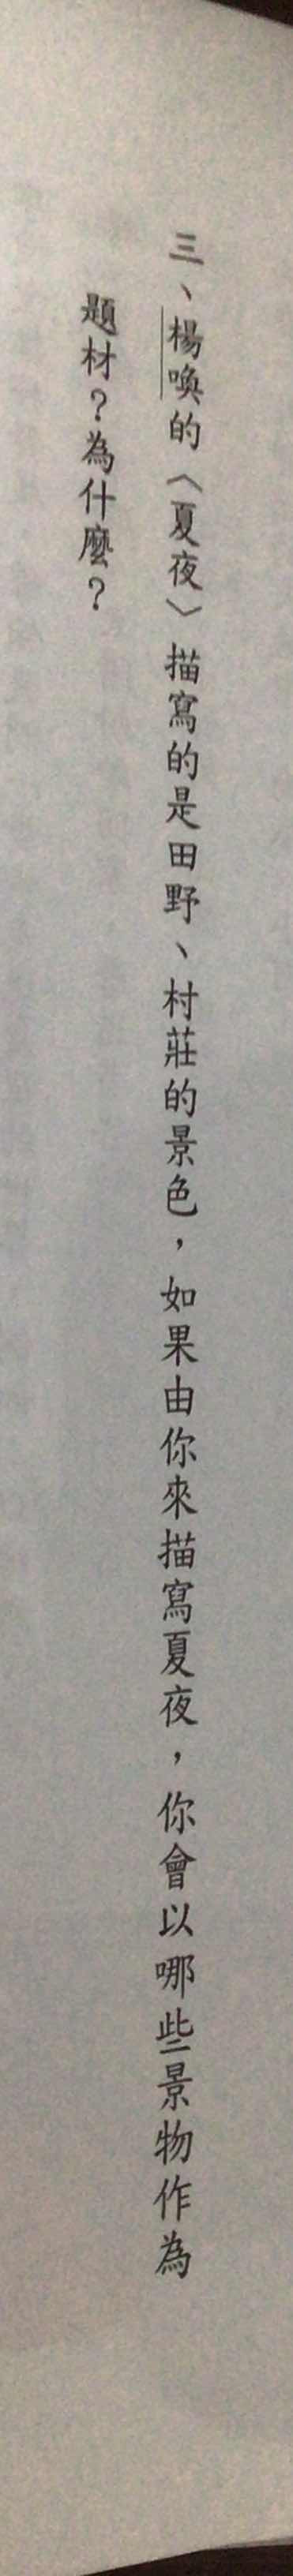 三、楊喚的〈夏夜〉描寫的是田野、村莊的景色，如果由你來描寫夏夜，你會以哪些景物作為
題材？為什麼？